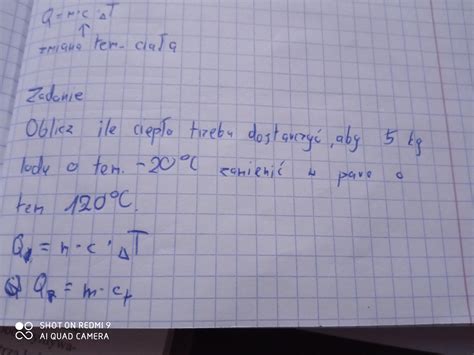 Q = m · c · ΔT
↑
zmiana tem. ciała
Zadanie
Oblicz ile ciepła trzeba dostarczyć, aby 5 kg
lodu o tem. -20°C zamienić w parę o
tem 120°C.
Q₁ = m · c · ΔT
Q₂ = m · cₜ
SHOT ON REDMI 9
AI QUAD CAMERA